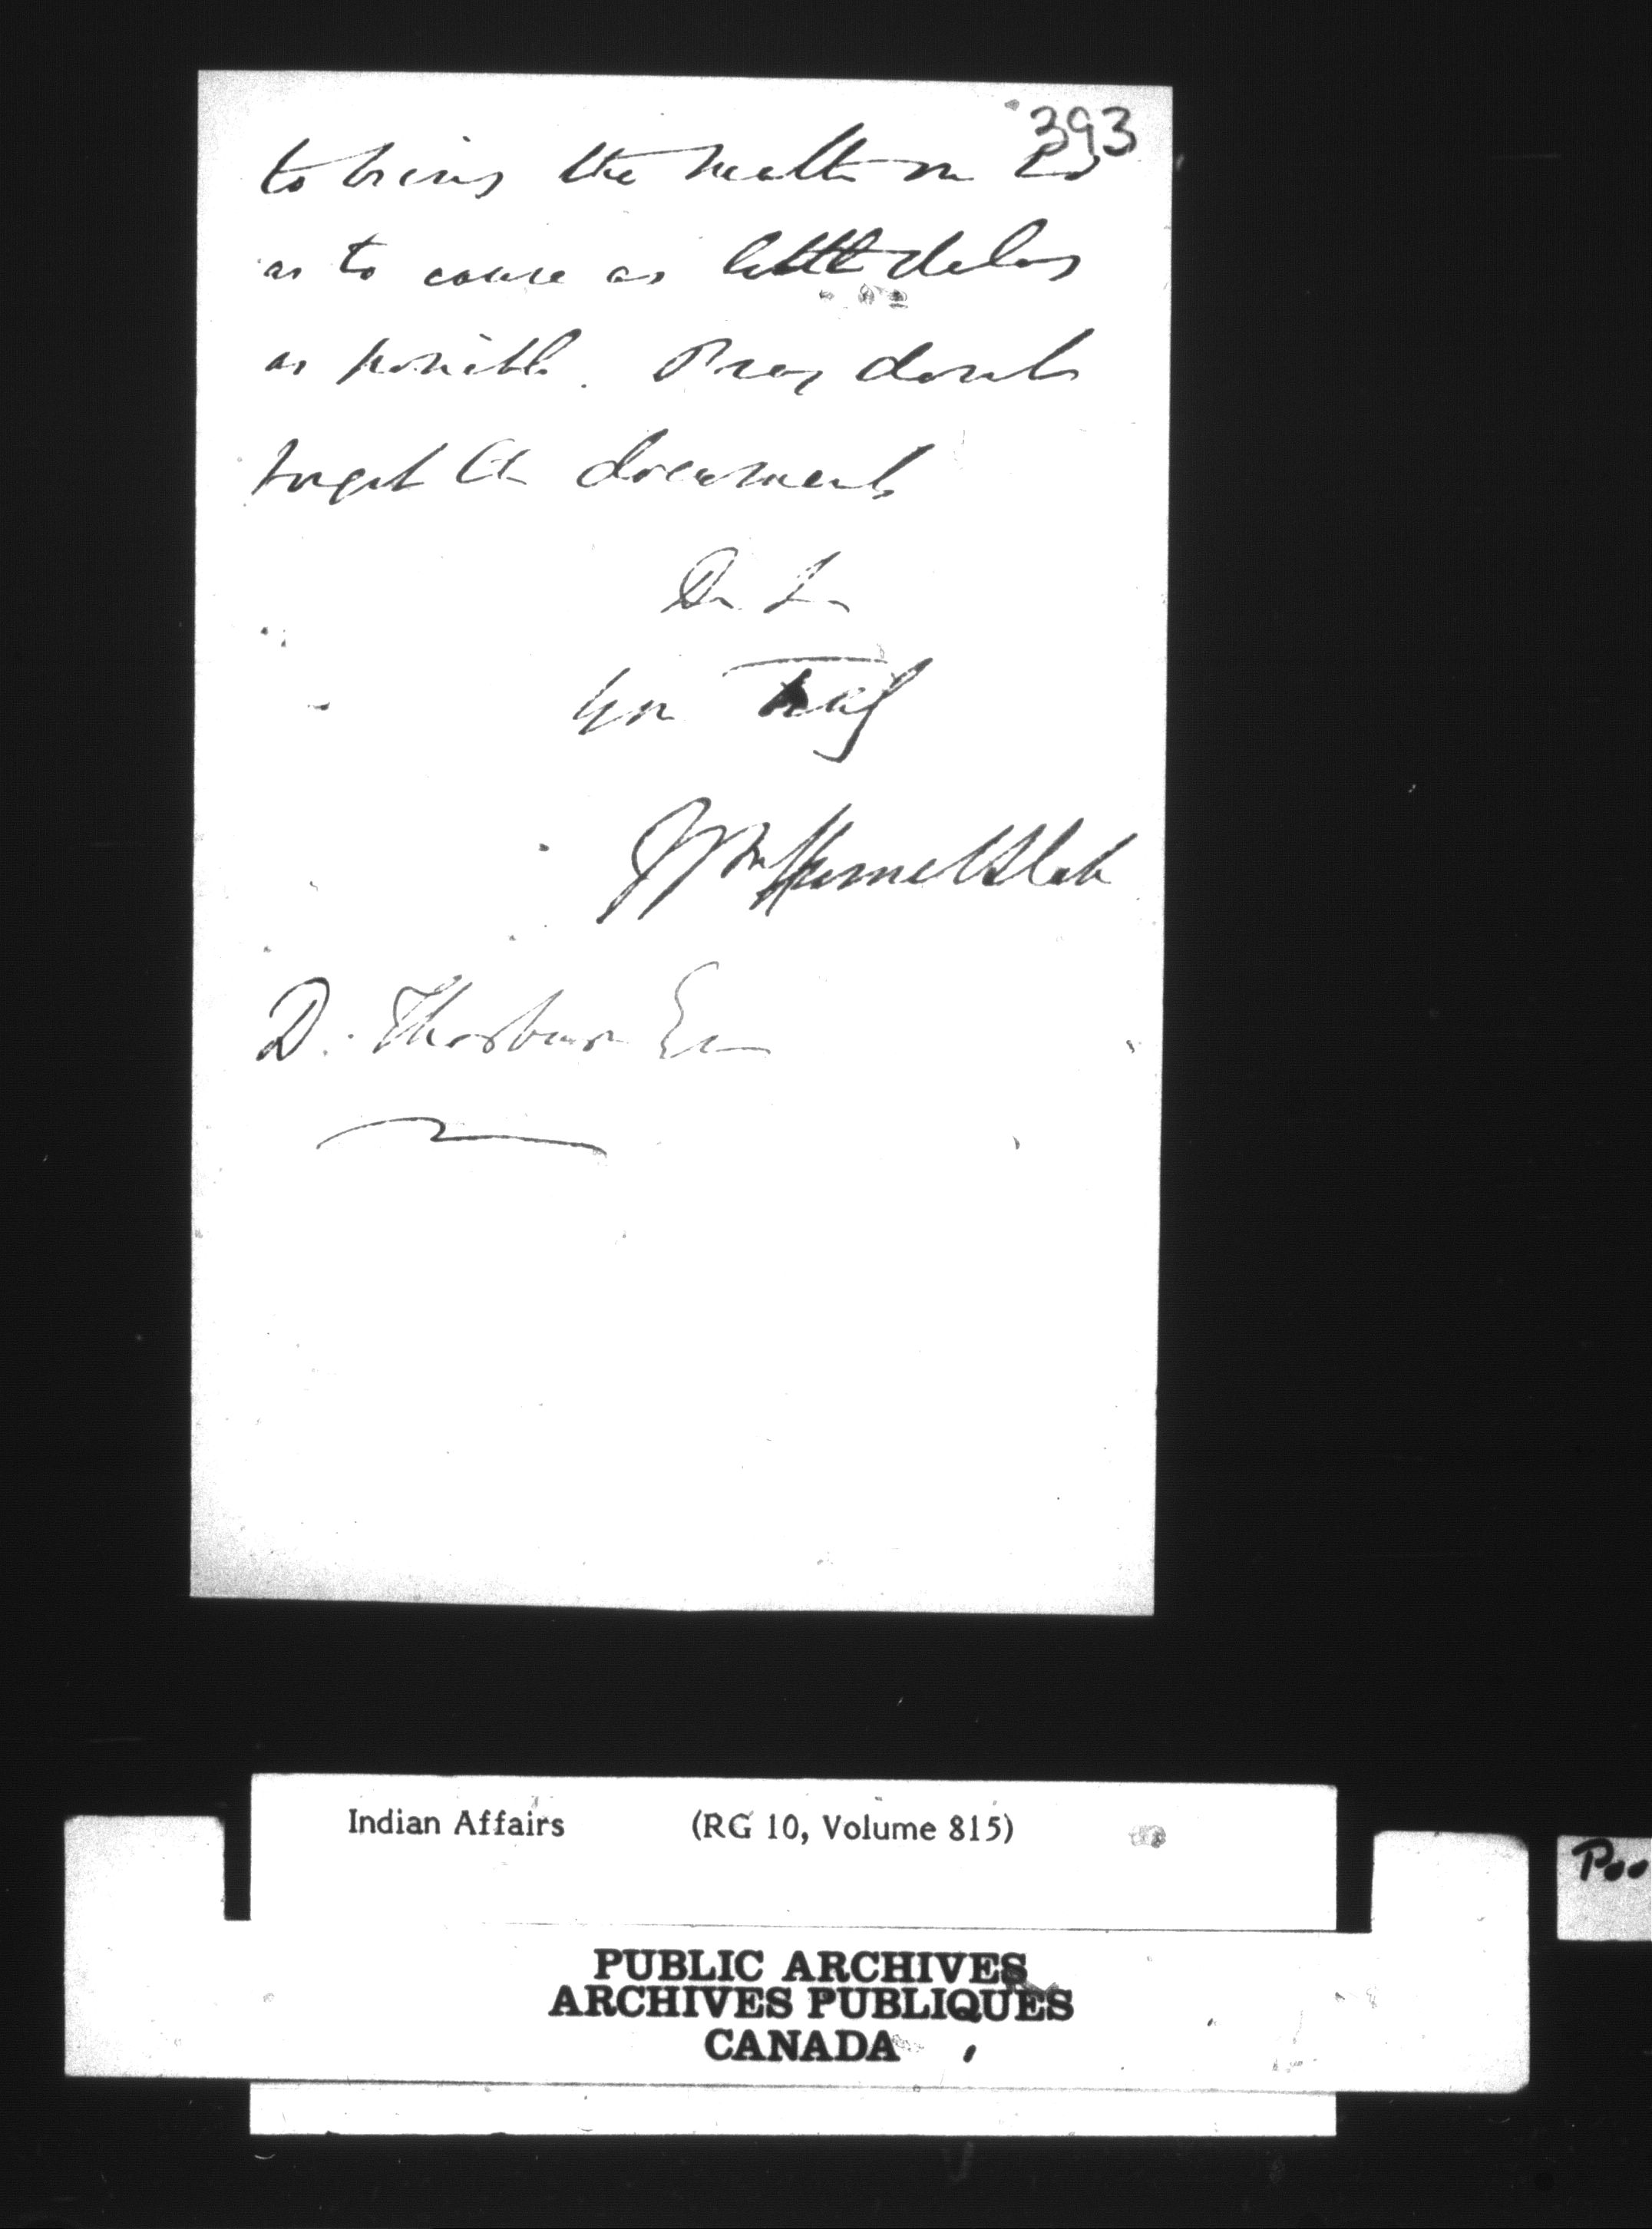 393
to bring the matter on so
as to cause as little delay
as possible. Pray don't
forget the documents
Dr Sr
yrs truly
Wm Hume Blake
D. Thorburn Esq
Indian Affairs (RG 10, Volume 815)
PUBLIC ARCHIVES
ARCHIVES PUBLIQUES
CANADA